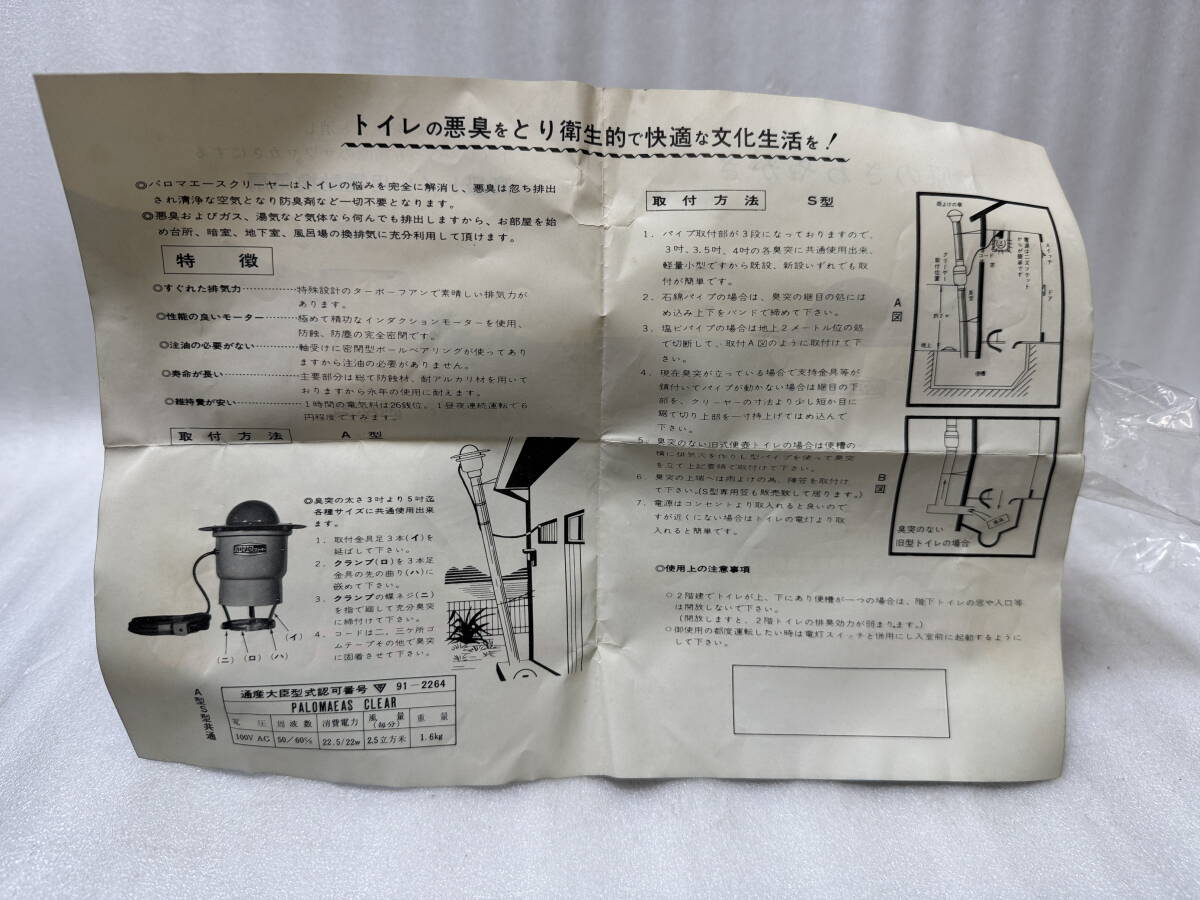 トイレの悪臭をとり衛生的で快適な文化生活を!
◎パロマエースクリーヤーは、トイレの悩みを完全に解消し、悪臭は忽ち排出
され清浄な空気となり防臭剤など一切不要となります。
◎悪臭およびガス、湯気など気体なら何んでも排出しますから、お部屋を始
め台所、暗室、地下室、風呂場の換排気に充分利用して頂けます。
特徴
◎すぐれた排気力…………特殊設計のターボーフアンで素晴しい排気力が
あります。
◎性能の良いモーター……極めて精功なインダクションモーターを使用、
防蝕、防塵の完全密閉です。
◎注油の必要がない………軸受けに密閉型ボールベアリングが使ってあり
ますから注油の必要がありません。
◎寿命が長い………………主要部分は総て防蝕材、耐アルカリ材を用いて
おりますから永年の使用に耐えます。
◎維持費が安い……………1時間の電気料は26銭位。1昼夜連続運転で6
円程度ですみます。
取付方法 A型
◎臭突の太さ3吋より5吋迄
各種サイズに共通使用出来
ます。
1. 取付金具足3本(イ)を
延ばして下さい。
2. クランプ(ロ)を3本足
金具の先の曲り(ハ)に
嵌めて下さい。
3. クランプの蝶ネジ(ニ)
を指で廻して充分臭突
に締付けて下さい。
4. コードは二、三ケ所ゴ
ムテープその他で臭突
に固着させて下さい。
(イ)
(ニ) (ロ) (ハ)
A型S型共通
通産大臣型式認可番号 91-2264
PALOMAEAS CLEAR
電圧 周波数 消費電力 風量(毎分) 重量
100V AC 50/60% 22.5/22w 2.5立方米 1.6kg
取付方法 S型
1. パイプ取付部が3段になっておりますので、
3吋、3.5吋、4吋の各臭突に共通使用出来、
軽量小型ですから既設、新設いずれでも取
付が簡単です。
2. 石綿パイプの場合は、臭突の継目の処には
め込み上下をバンドで締めて下さい。
3. 塩ビパイプの場合は地上2メートル位の処
で切断して、取付A図のように取付けて下
さい。
4. 現在臭突が立っている場合で支持金具等が
錆付いてパイプが動かない場合は継目の下
部を、クリーヤーの寸法より少し短か目に
鋸で切り上部を一寸持上げてはめ込んで
下さい。
5. 臭突のない旧式便壺トイレの場合は便槽の
横に排気穴を作りL型パイプを使って臭突
を立て上記要領で取付けて下さい。
6. 臭突の上端へは雨よけの為、陣笠を取付け
て下さい。(S型専用笠も販売致して居ります。)
7. 電源はコンセントより取入れると良いので
すが近くにない場合はトイレの電灯より取
入れると簡単です。
A図
雨よけの傘
クリーヤー取付位置
臭突
コード
電源は二又ソケットだから簡単です
スイッチ
ドア
地上
便槽
B図
臭突のない
旧型トイレの場合
◎使用上の注意事項
○2階建でトイレが上、下にあり便槽が一つの場合は、階下トイレの窓や入口等
は開放しないで下さい。
(開放しますと、2階トイレの排臭効力が弱まります。)
○御使用の都度運転したい時は電灯スイッチと併用にし入室前に起動するように
して下さい。